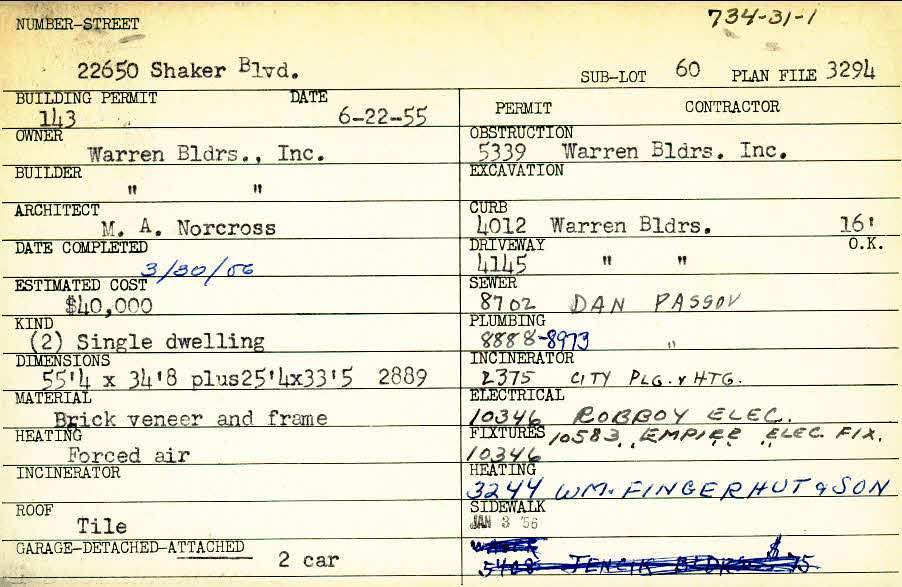 NUMBER-STREET
734-31-1
22650 Shaker Blvd.
SUB-LOT 60 PLAN FILE 3294
BUILDING PERMIT DATE
143 6-22-55
OWNER
Warren Bldrs., Inc.
BUILDER
" "
ARCHITECT
M. A. Norcross
DATE COMPLETED
3/30/56
ESTIMATED COST
$40,000
KIND
(2) Single dwelling
DIMENSIONS
55'4 x 34'8 plus25'4x33'5 2889
MATERIAL
Brick veneer and frame
HEATING
Forced air
INCINERATOR
ROOF
Tile
GARAGE-DETACHED-ATTACHED
2 car
PERMIT CONTRACTOR
OBSTRUCTION
5339 Warren Bldrs. Inc.
EXCAVATION
CURB
4012 Warren Bldrs. 16'
DRIVEWAY O.K.
4145 " "
SEWER
8702 DAN PASSOV
PLUMBING
8888-8973 "
INCINERATOR
2375 CITY PLG. & HTG.
ELECTRICAL
10346 ROBBOY ELEC.
FIXTURES 10583 EMPIRE ELEC. FIX.
10346 " "
HEATING
3244 WM. FINGERHUT & SON
SIDEWALK
JAN 3 '56
5408 JENCIK BLDRS $75